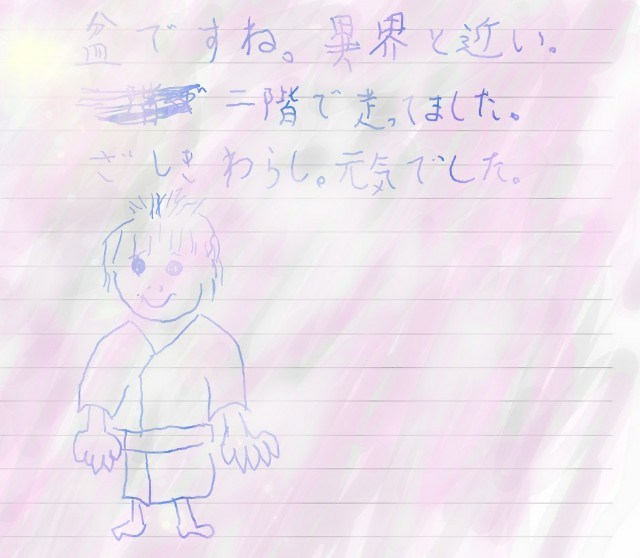 盆ですね。異界と近い。
二階で走ってました。
ざしきわらし。元気でした。